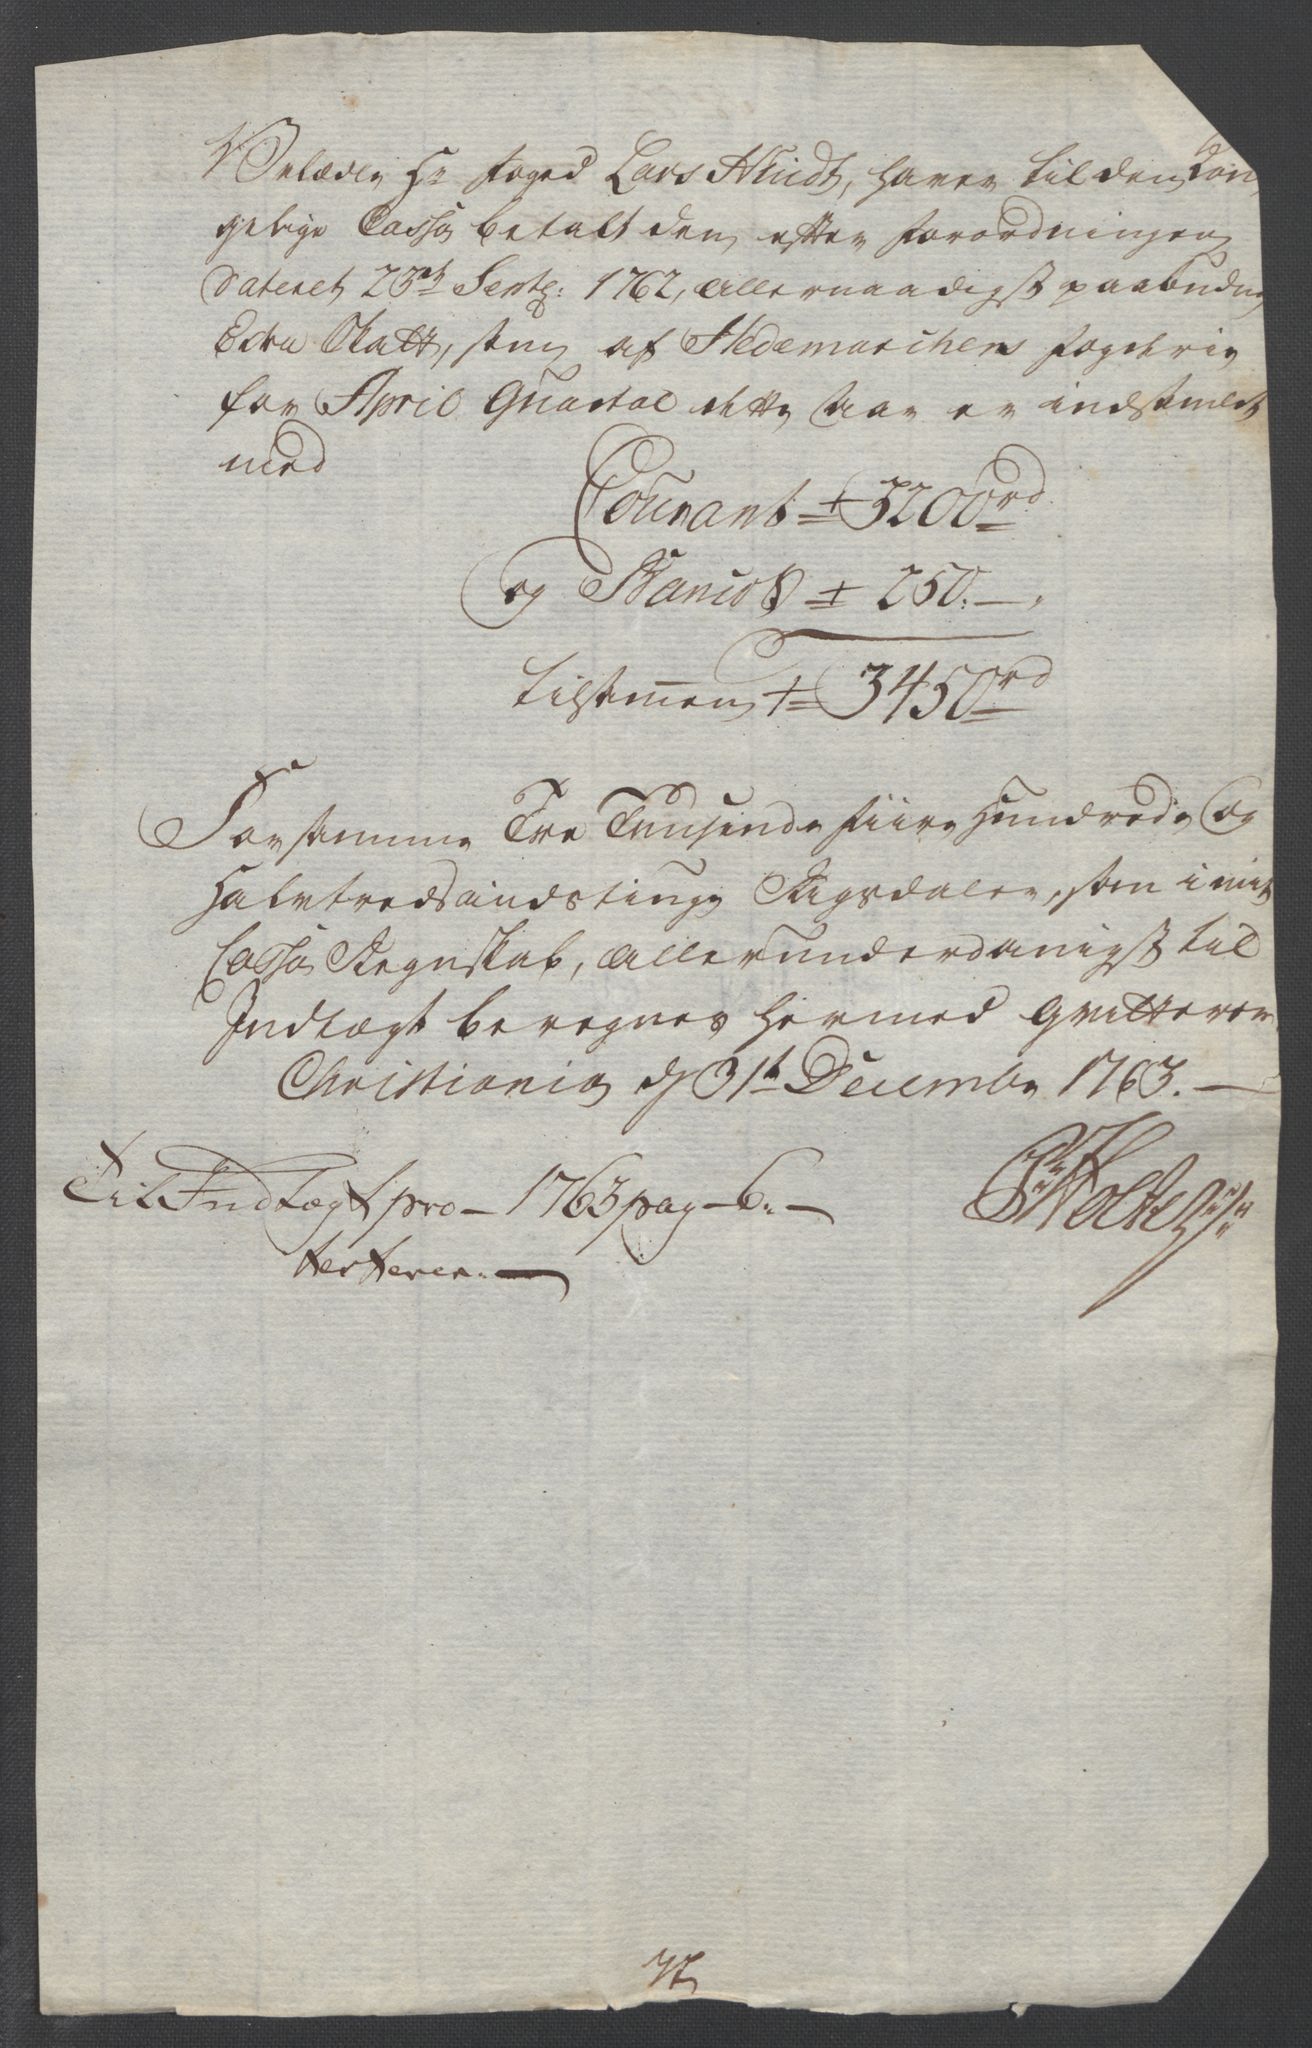 Velædle Hr Foged Lars Flindt, haver til den Kon
gelige Cassa betalt den efter Forordningen
dateret 23de Septb: 1762, allernaadigst paabudne
Extra Skatt, som af Hedemarchens Fogderie
for April Quartal dette Aar er indkommen
med
Courant ± 3200rd
og Banco ± 250. —
tilsammen ± 3450rd
Forstemme Tre Tusende fiire Hundrede og
Halvtredsindstiuge Rigsdaler, som i mit
Cassa Regnskab, allerunderdanigst til
Indtægt beregnes hermed Qvitterer
Christiania d 31te Decembr 1763. —
Holter
Til Indtægt pro — 1763 pag — 6. —
testerer. —